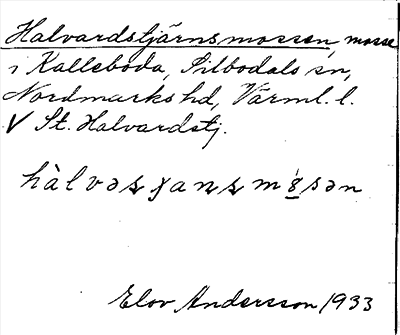 Halvardstjärnsmossen, mosse
i Kalleboda, Silbodals sn,
Nordmarks hd, Värml. l.
V St. Halvardstj.
Elov Andersson 1933